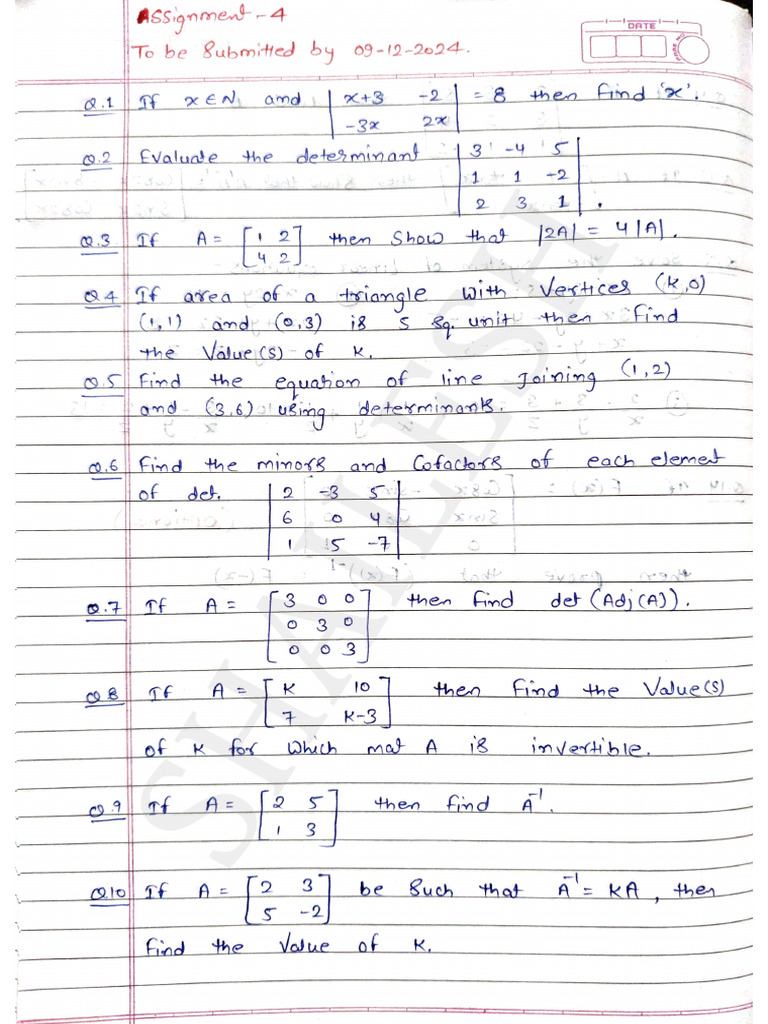 Assignment-4
DATE
To be Submitted by 09-12-2024.
PAGE NO.
Q.1 If x∈N and | x+3 -2 | = 8 then find 'x'.
| -3x 2x |
Q.2 Evaluate the determinant | 3 -4 5 |
| 1 1 -2 |
| 2 3 1 | .
Q.3 If A = [ 1 2 ] then Show that |2A| = 4|A|.
[ 4 2 ]
Q.4 If area of a triangle with Vertices (K,0)
(1,1) and (0,3) is 5 sq. unit then find
the Value(s) of K.
Q.5 Find the equation of line Joining (1,2)
and (3,6) using determinants.
Q.6 Find the minors and Cofactors of each element
of det. | 2 -3 5 |
| 6 0 4 |
| 1 5 -7 |
Q.7 If A = [ 3 0 0 ] then find det (Adj(A)).
[ 0 3 0 ]
[ 0 0 3 ]
Q.8 If A = [ K 10 ] then find the Value(s)
[ 7 K-3 ]
of K for which mat A is invertible.
Q.9 If A = [ 2 5 ] then find A⁻¹.
[ 1 3 ]
Q.10 If A = [ 2 3 ] be Such that A⁻¹ = KA, then
[ 5 -2 ]
find the Value of K.
SHAILESH